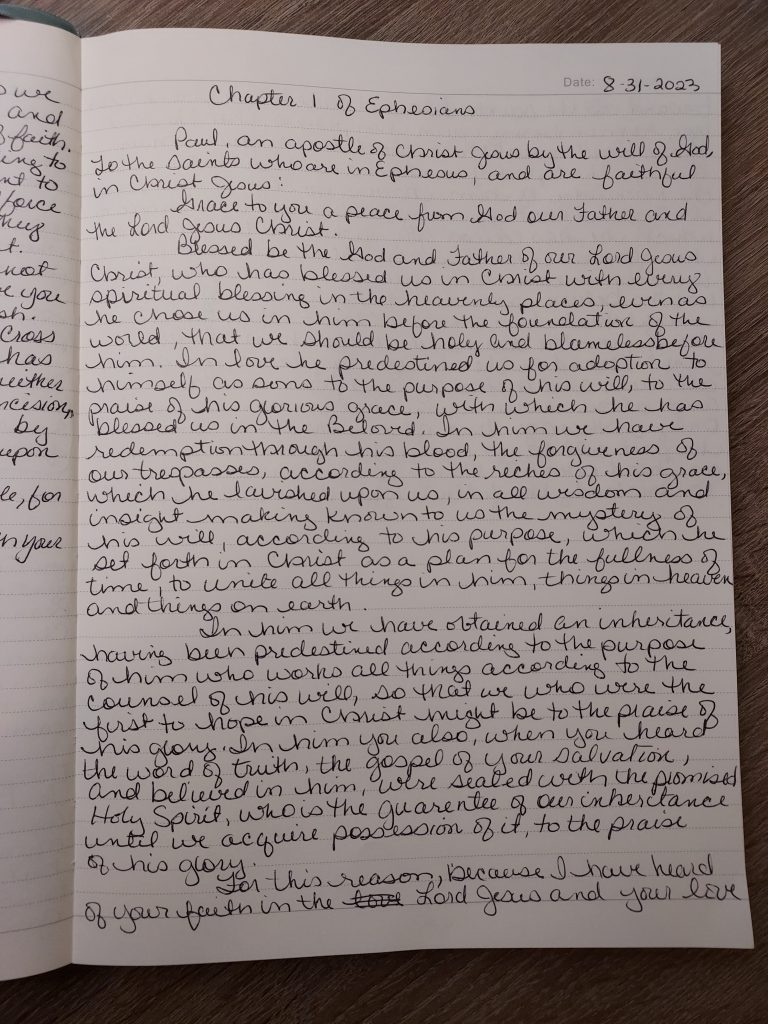 Date: 8-31-2023
Chapter 1 of Ephesians
Paul, an apostle of Christ Jesus by the will of God,
To the saints who are in Ephesus, and are faithful
in Christ Jesus:
Grace to you a peace from God our Father and
the Lord Jesus Christ.
Blessed be the God and Father of our Lord Jesus
Christ, who has blessed us in Christ with every
spiritual blessing in the heavenly places, even as
he chose us in him before the foundation of the
world, that we should be holy and blameless before
him. In love he predestined us for adoption to
himself as sons to the purpose of his will, to the
praise of his glorious grace, with which he has
blessed us in the Beloved. In him we have
redemption through his blood, the forgiveness of
our trespasses, according to the reches of his grace,
which he lavished upon us, in all wisdom and
insight making known to us the mystery of
his will, according to his purpose, which he
set forth in Christ as a plan for the fullness of
time, to unite all things in him, things in heaven
and things on earth.
In him we have obtained an inheritance,
having been predestined according to the purpose
of him who works all things according to the
counsel of his will, so that we who were the
first to hope in Christ might be to the praise of
his glory. In him you also, when you heard
the word of truth, the gospel of your salvation,
and believed in him, were sealed with the promised
Holy Spirit, who is the guarentee of our inheritance
until we acquire possession of it, to the praise
of his glory.
For this reason, because I have heard
of your faith in the love Lord Jesus and your love
we
and
faith.
to
to
force
t.
not
you
sh.
Cross
has
neither
by
upon
for
your